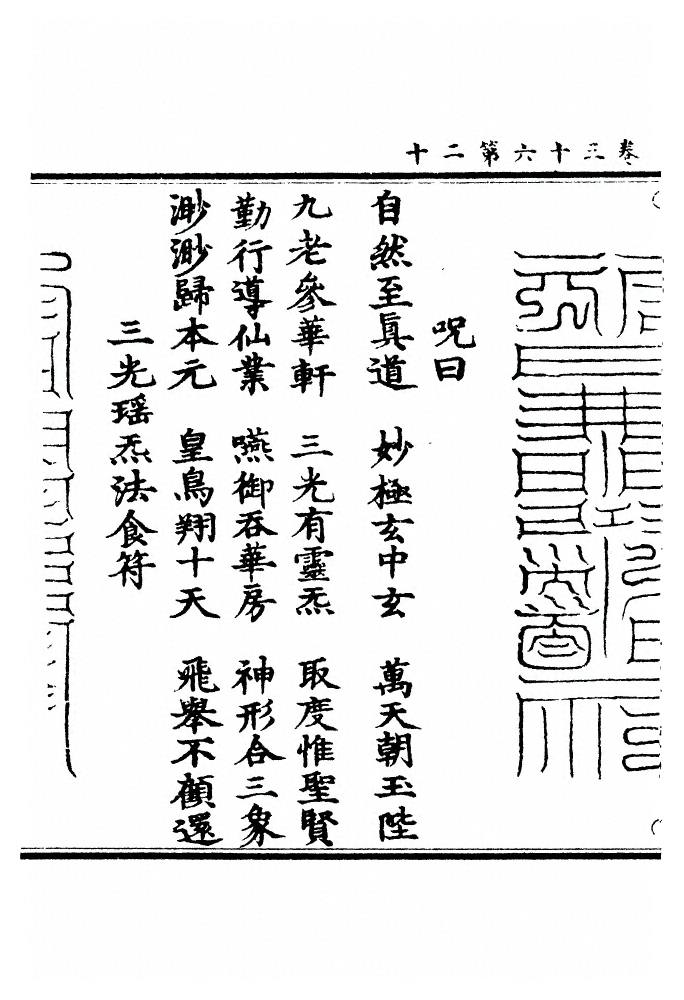 卷三十六第二十
呪曰
自然至眞道　妙極玄中玄　萬天朝玉陛
九老參華軒　三光有靈炁　取度惟聖賢
勤行導仙業　嚥御吞華房　神形合三象
渺渺歸本元　皇鳥翔十天　飛舉不顧還
三光瑶炁法食符